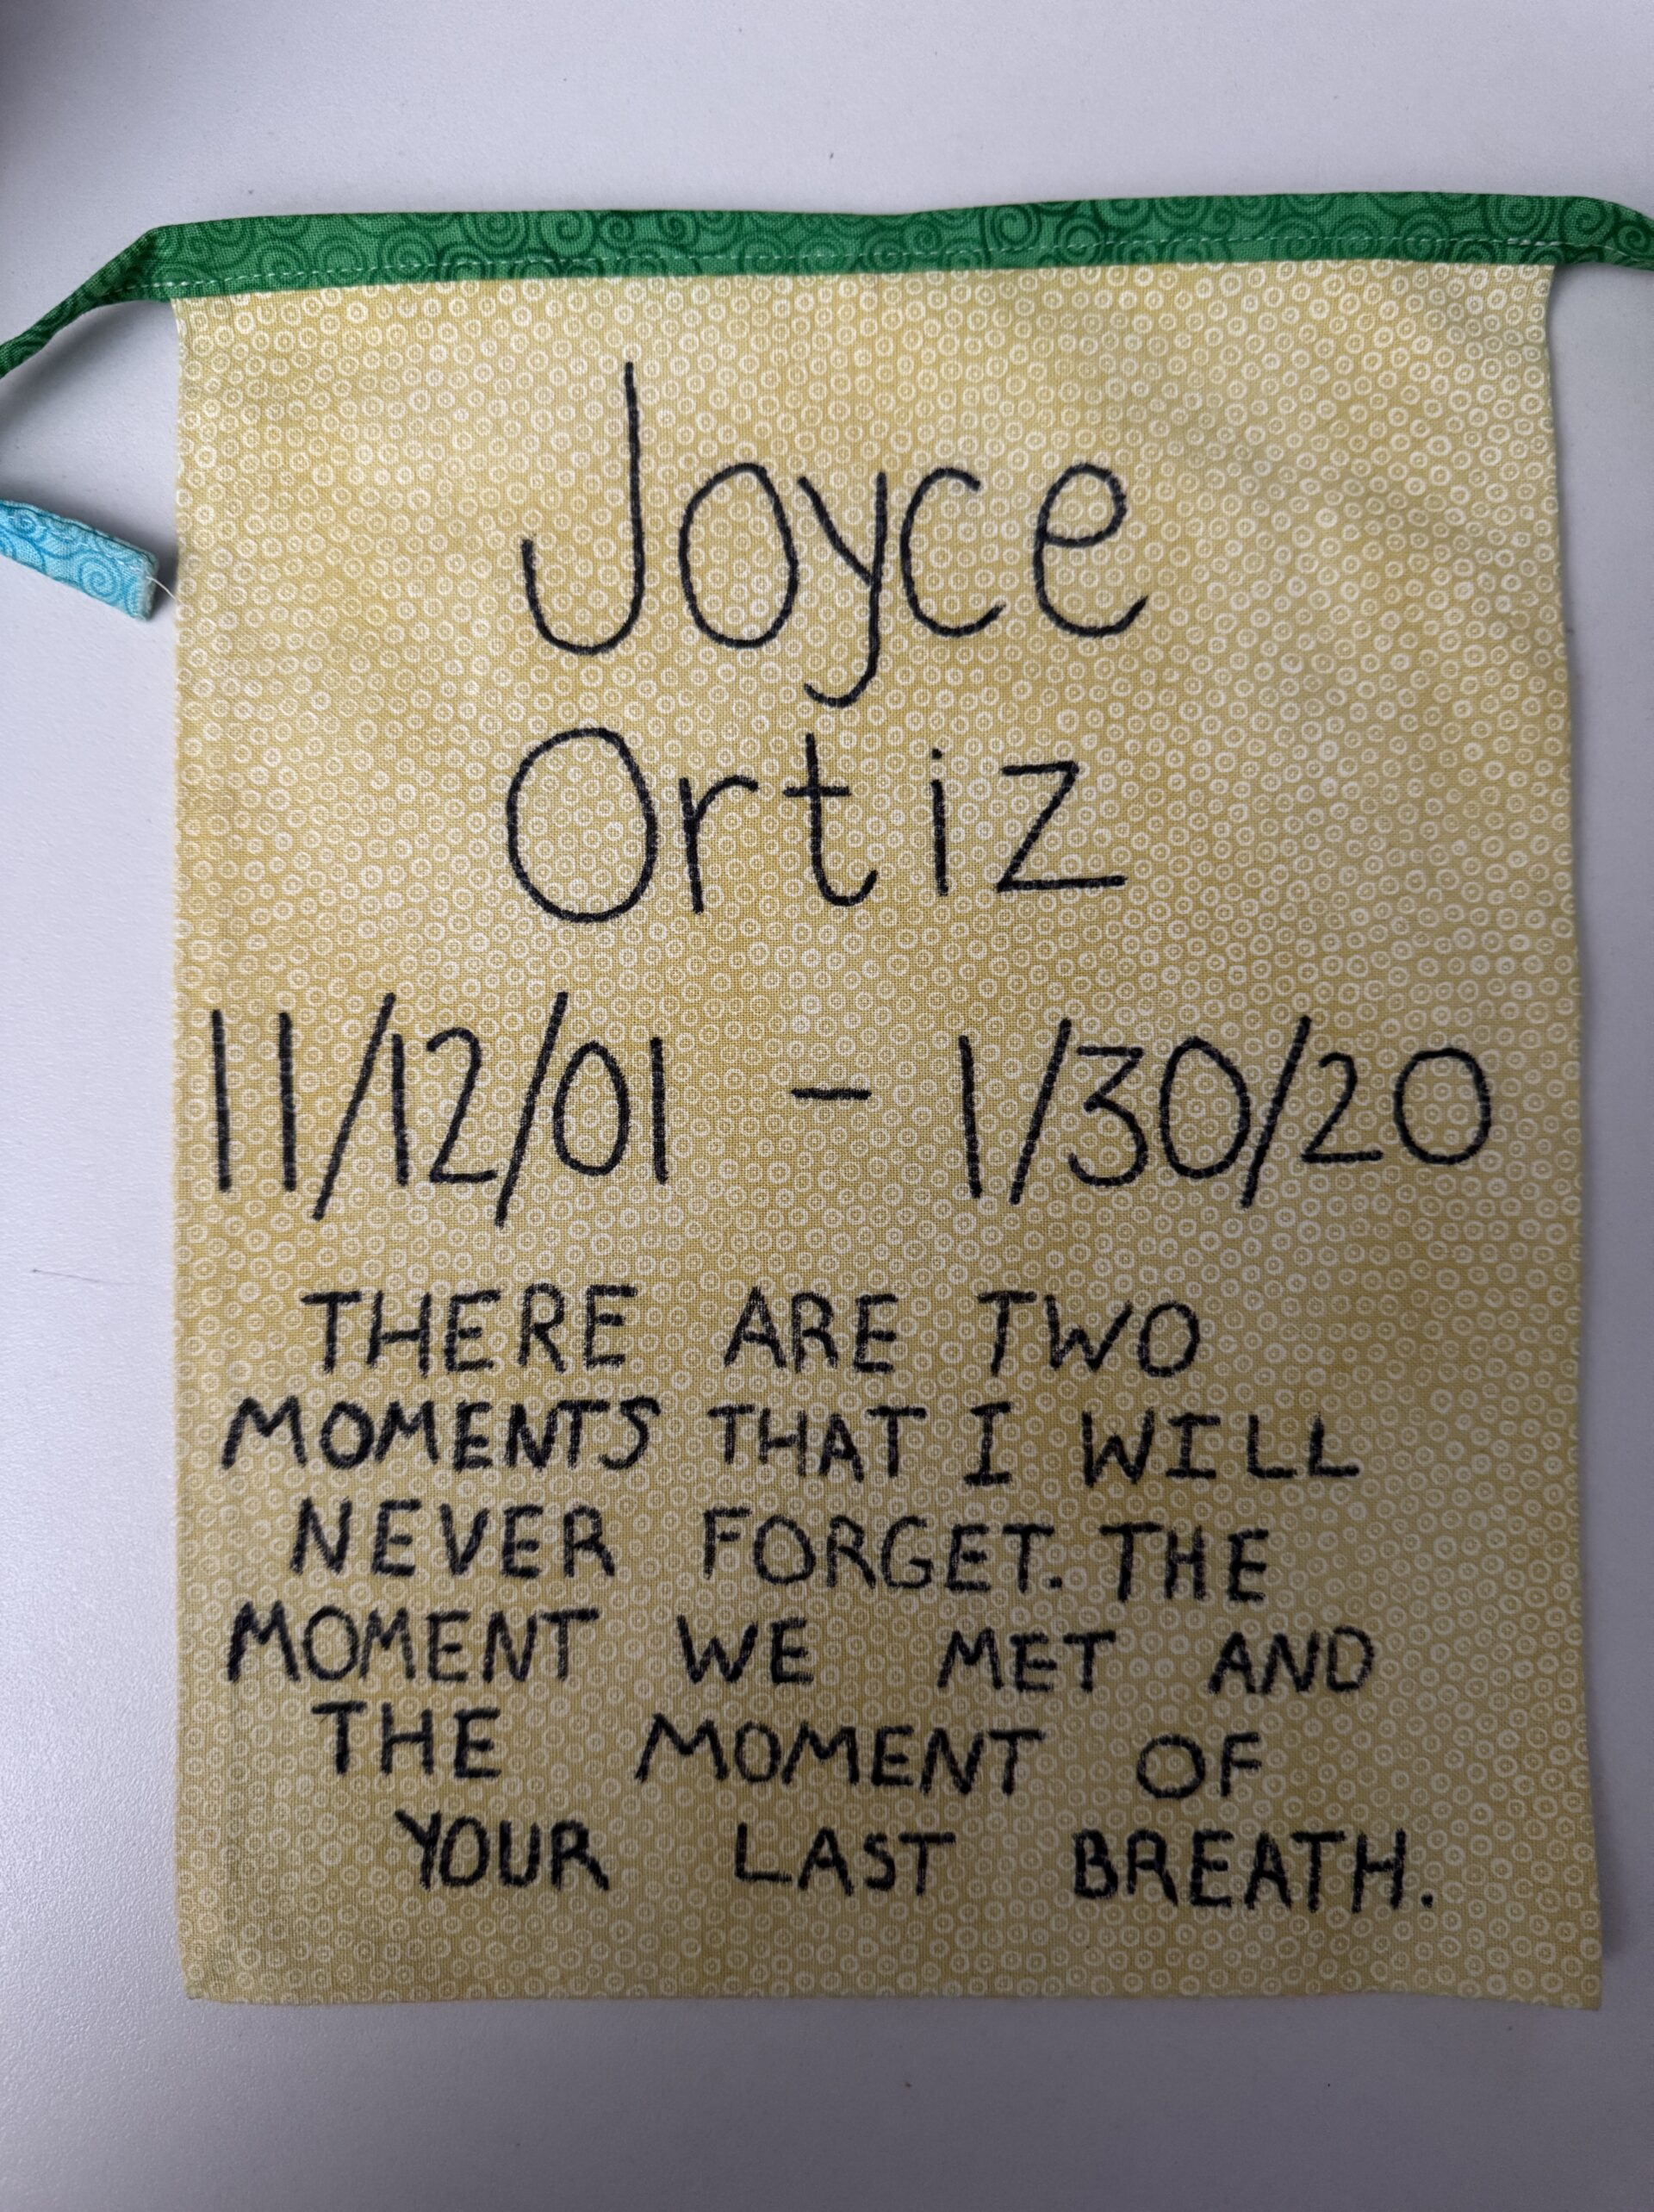 Joyce
Ortiz
11/12/01 - 1/30/20
THERE ARE TWO
MOMENTS THAT I WILL
NEVER FORGET. THE
MOMENT WE MET AND
THE MOMENT OF
YOUR LAST BREATH.